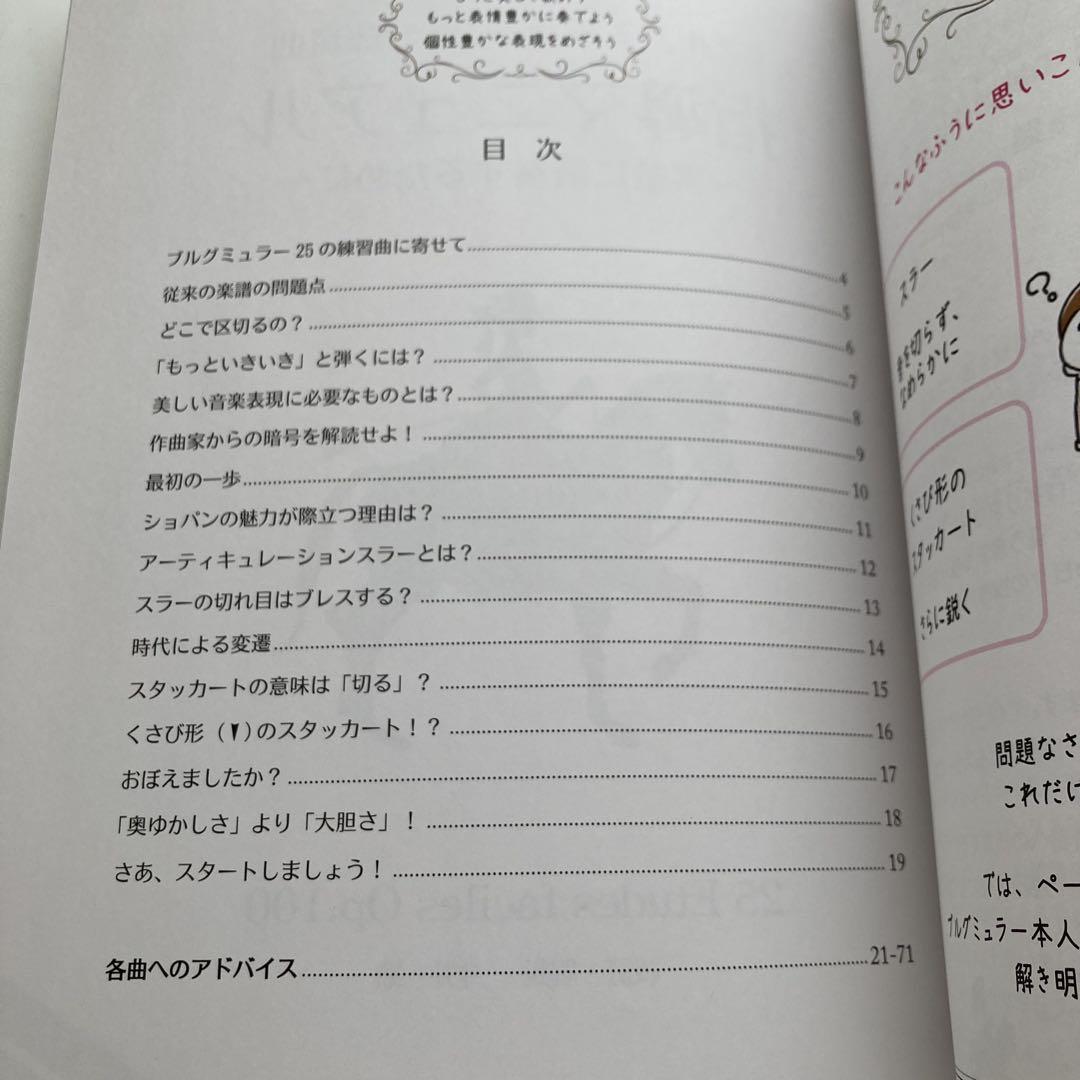 もっと表情豊かに奏でよう
個性豊かな表現をめざそう
目 次
ブルグミュラー 25 の練習曲に寄せて 4
従来の楽譜の問題点 5
どこで区切るの？ 6
「もっといきいき」と弾くには？ 7
美しい音楽表現に必要なものとは？ 8
作曲家からの暗号を解読せよ！ 9
最初の一歩 10
ショパンの魅力が際立つ理由は？ 11
アーティキュレーションスラーとは？ 12
スラーの切れ目はブレスする？ 13
時代による変遷 14
スタッカートの意味は「切る」？ 15
くさび形（▼）のスタッカート！？ 16
おぼえましたか？ 17
「奥ゆかしさ」より「大胆さ」！ 18
さあ、スタートしましょう！ 19
各曲へのアドバイス 21-71
こんなふうに思いこ
スラー
音を切らず、
なめらかに
?
くさび形の
スタッカート
さらに鋭く
問題なさ
これだけ
では、ペー
ブルグミュラー本人
解き明